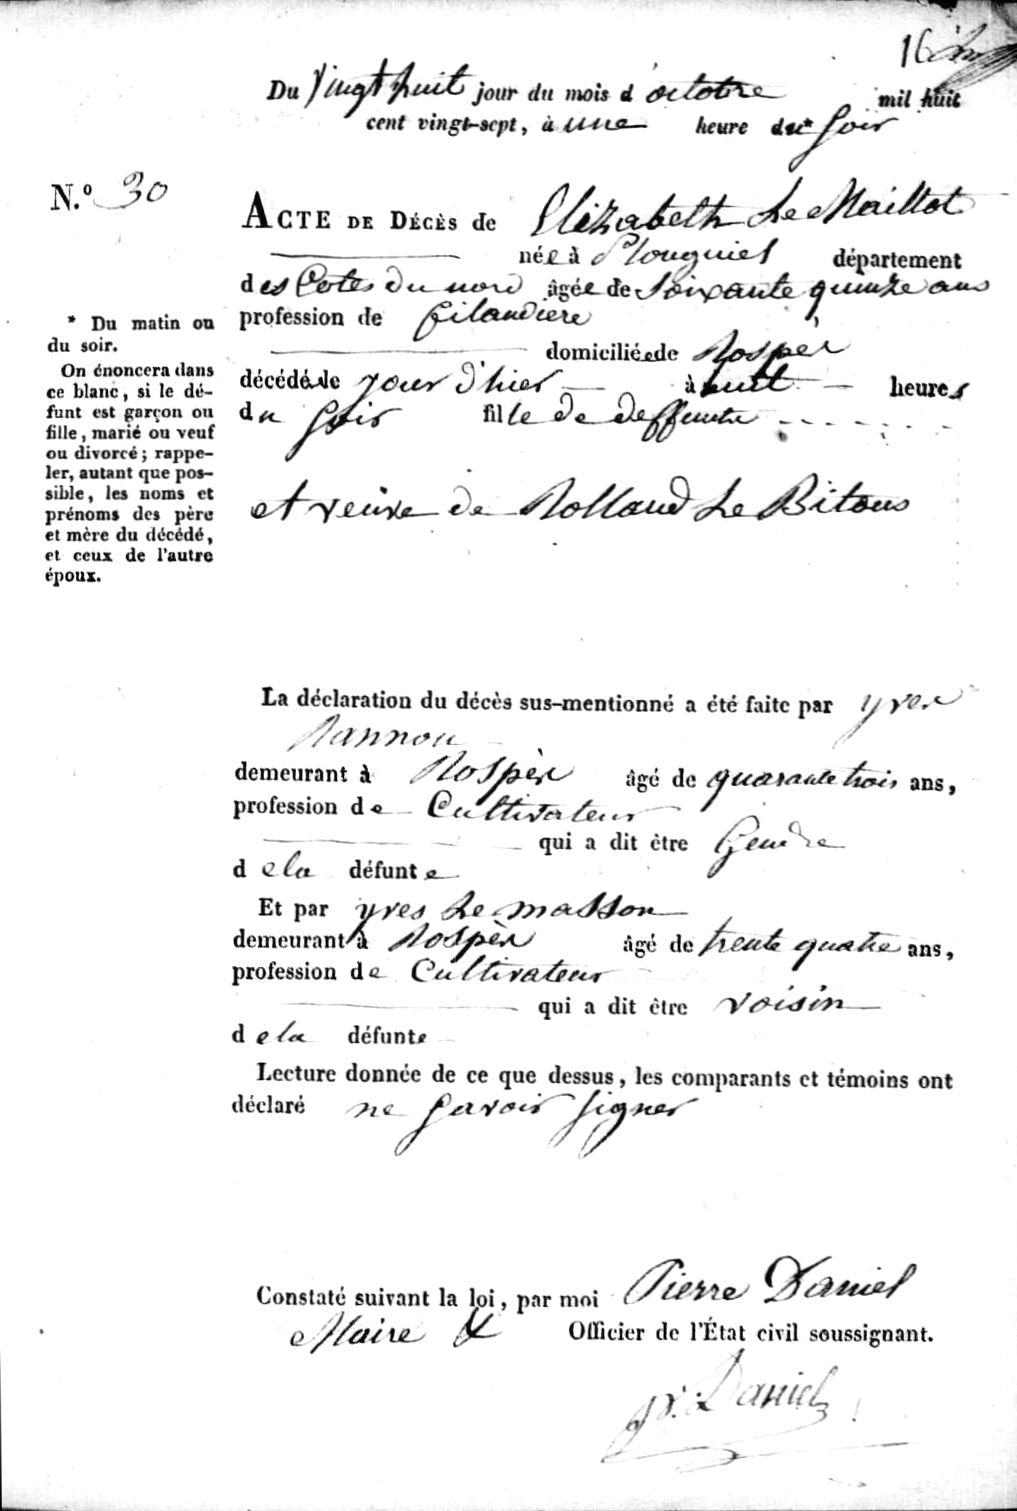 16
Du vingt huit jour du mois d'octobre mil huit
cent vingt-sept, à une heure du* soir
N.º 30
ACTE DE DÉCÈS de Elizabeth Le Maillot
née à Plouguiel département
des Cotes du nord âgée de Soixante quinze ans
profession de filandiere
domiciliée de Rospèz
décédée le jour d'hier à huit heures
du soir fille de deffunts
et veuve de Rolland Le Bitous
* Du matin ou
du soir.
On énoncera dans
ce blanc, si le dé-
funt est garçon ou
fille, marié ou veuf
ou divorcé; rappe-
ler, autant que pos-
sible, les noms et
prénoms des père
et mère du décédé,
et ceux de l'autre
époux.
La déclaration du décès sus-mentionné a été faite par yves
Rannou
demeurant à Rospèz âgé de quarante trois ans,
profession de Cultivateur
qui a dit être Gendre
de la défunte
Et par yves Le masson
demeurant à Rospèz âgé de trente quatre ans,
profession de Cultivateur
qui a dit être voisin
de la défunte
Lecture donnée de ce que dessus, les comparants et témoins ont
déclaré ne savoir signer
Constaté suivant la loi, par moi Pierre Daniel
Maire & Officier de l'État civil soussignant.
p. Daniel